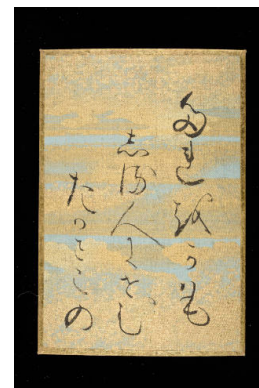 たれ越かも
志る人にせむ
たかさこの